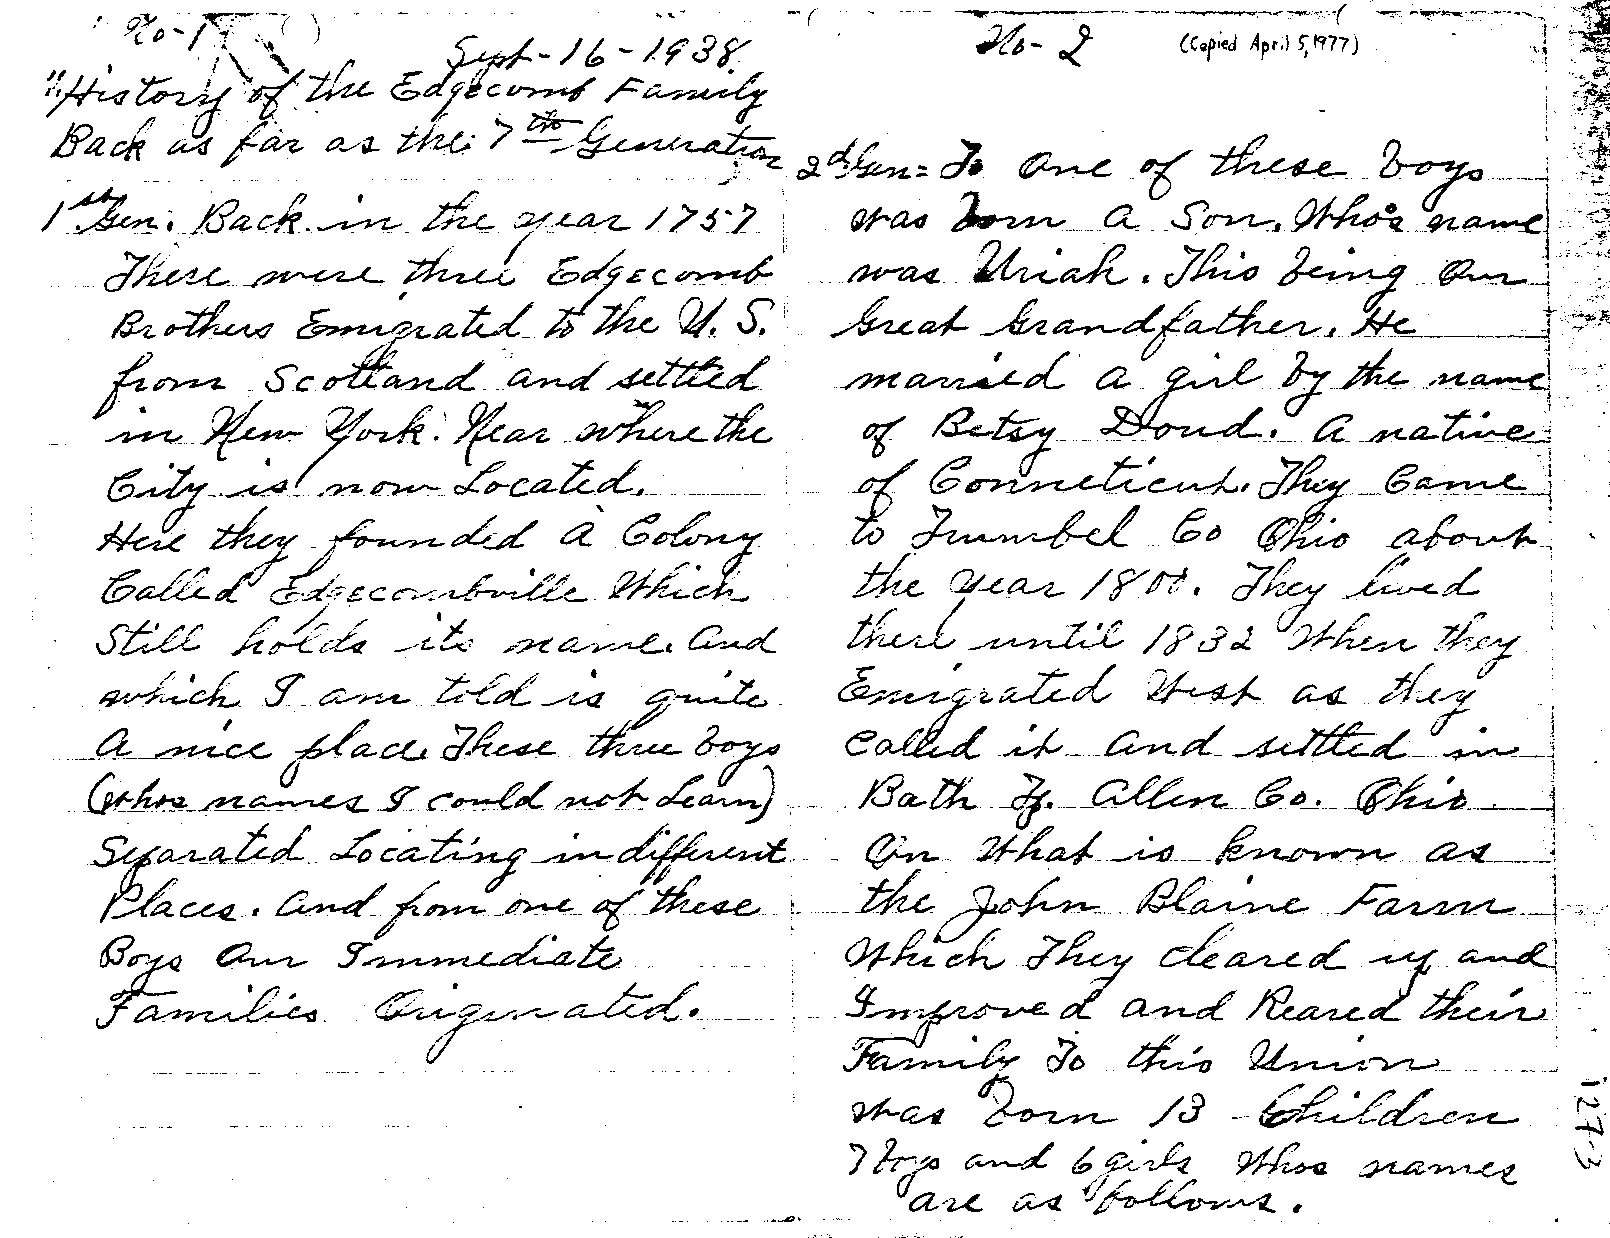 No-1
Sept-16-1938.
"History of the Edgecomb Family
Back as far as the 7th Generation
1st Gen. Back in the year 1757
There were three Edgecomb
Brothers Emigrated to the U. S.
from Scotland and settled
in New York. Near where the
City is now Located.
Here they founded a Colony
Called Edgecombville Which
Still holds its name. and
which I am told is quite
a nice place. These three boys
(whos names I could not Learn)
Separated Locating in different
Places. and from one of these
Boys Our Immediate
Families Originated.
No-2 (Copied April 5, 1977)
2d Gen= To one of these boys
was born a Son. Who's name
was Uriah. This being Our
Great Grandfather. He
married a girl by the name
of Betsy Doud. a native
of Conneticut. They Came
to Trumbel Co Ohio about
the year 1800. They lived
there until 1832 When they
Emigrated West as they
called it and settled in
Bath Tp. Allen Co. Ohio
On What is known as
the John Blaine Farm
Which They cleared up and
Improved and Reared their
Family To this Union
was born 13 Children
7 boys and 6 girls Whos names
are as follows.
127-3